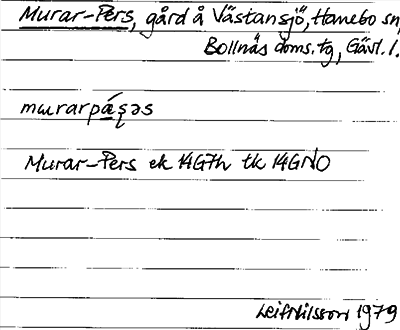 Murar-Pers, gård å Västansjö, Hanebo sn,
Bollnäs doms. tg, Gävl. l.
Murar-Pers ek 14G7h tk 14GNO
Leif Nilsson 1979